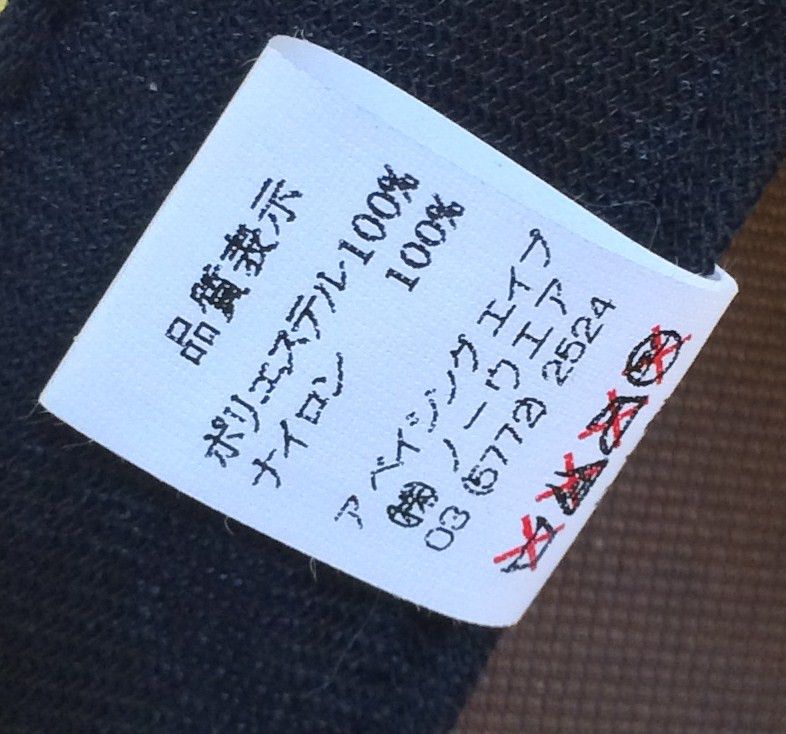 品質表示
ポリエステル100%
ナイロン 100%
ア ベイシング エイプ
㈱ ノーウエア
03 (5772) 2524